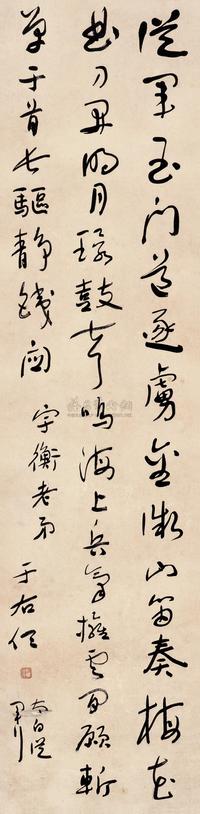 從軍玉門道逐虜金微山笛奏梅花
曲刀開明月環鼓聲鳴海上兵氣擁雲間願斬
單于首長驅靜鐵關 字衡老弟 于右任
太白從
軍行